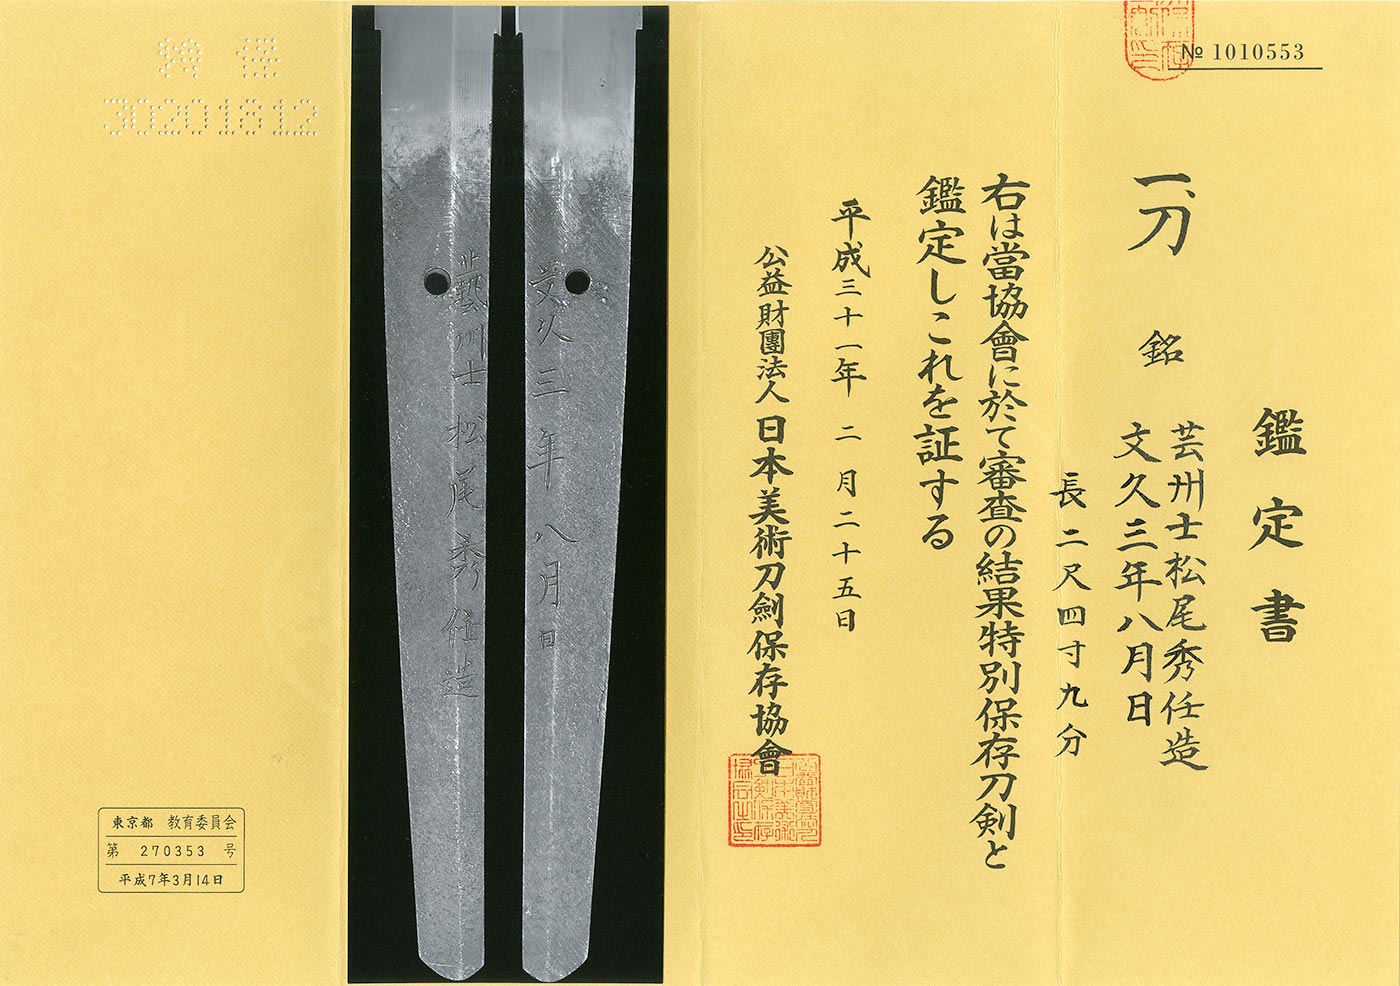 № 1010553
鑑定書
一、刀 銘 芸州士松尾秀任造
文久三年八月日
長二尺四寸九分
右は當協會に於て審査の結果特別保存刀剣と
鑑定しこれを証する
平成三十一年 二月二十五日
公益財團法人 日本美術刀劍保存協會
文久三年八月日
藝州士松尾秀任造
特保
30201812
東京都 教育委員会
第 270353 号
平成7年3月14日